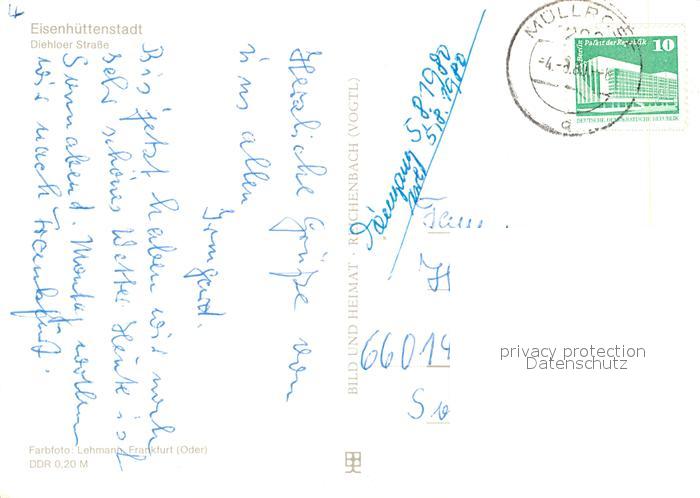 Eisenhüttenstadt
Diehloer Straße
Herzliche Grüße von
uns allen
Irmgard.
Bis jetzt haben wir noch
sehr schönes Wetter. Heute ist
Sonnabend. Montag wollen
wir nach Frankfurt.
Farbfoto: Lehmann, Frankfurt (Oder)
DDR 0,20 M
BILD UND HEIMAT · REICHENBACH (VOGTL)
5.8.1980
5.8.1980
MÜLLROSE
Berlin Palast der Republik 10
DEUTSCHE DEMOKRATISCHE REPUBLIK
Fam.
66014
privacy protection
Datenschutz